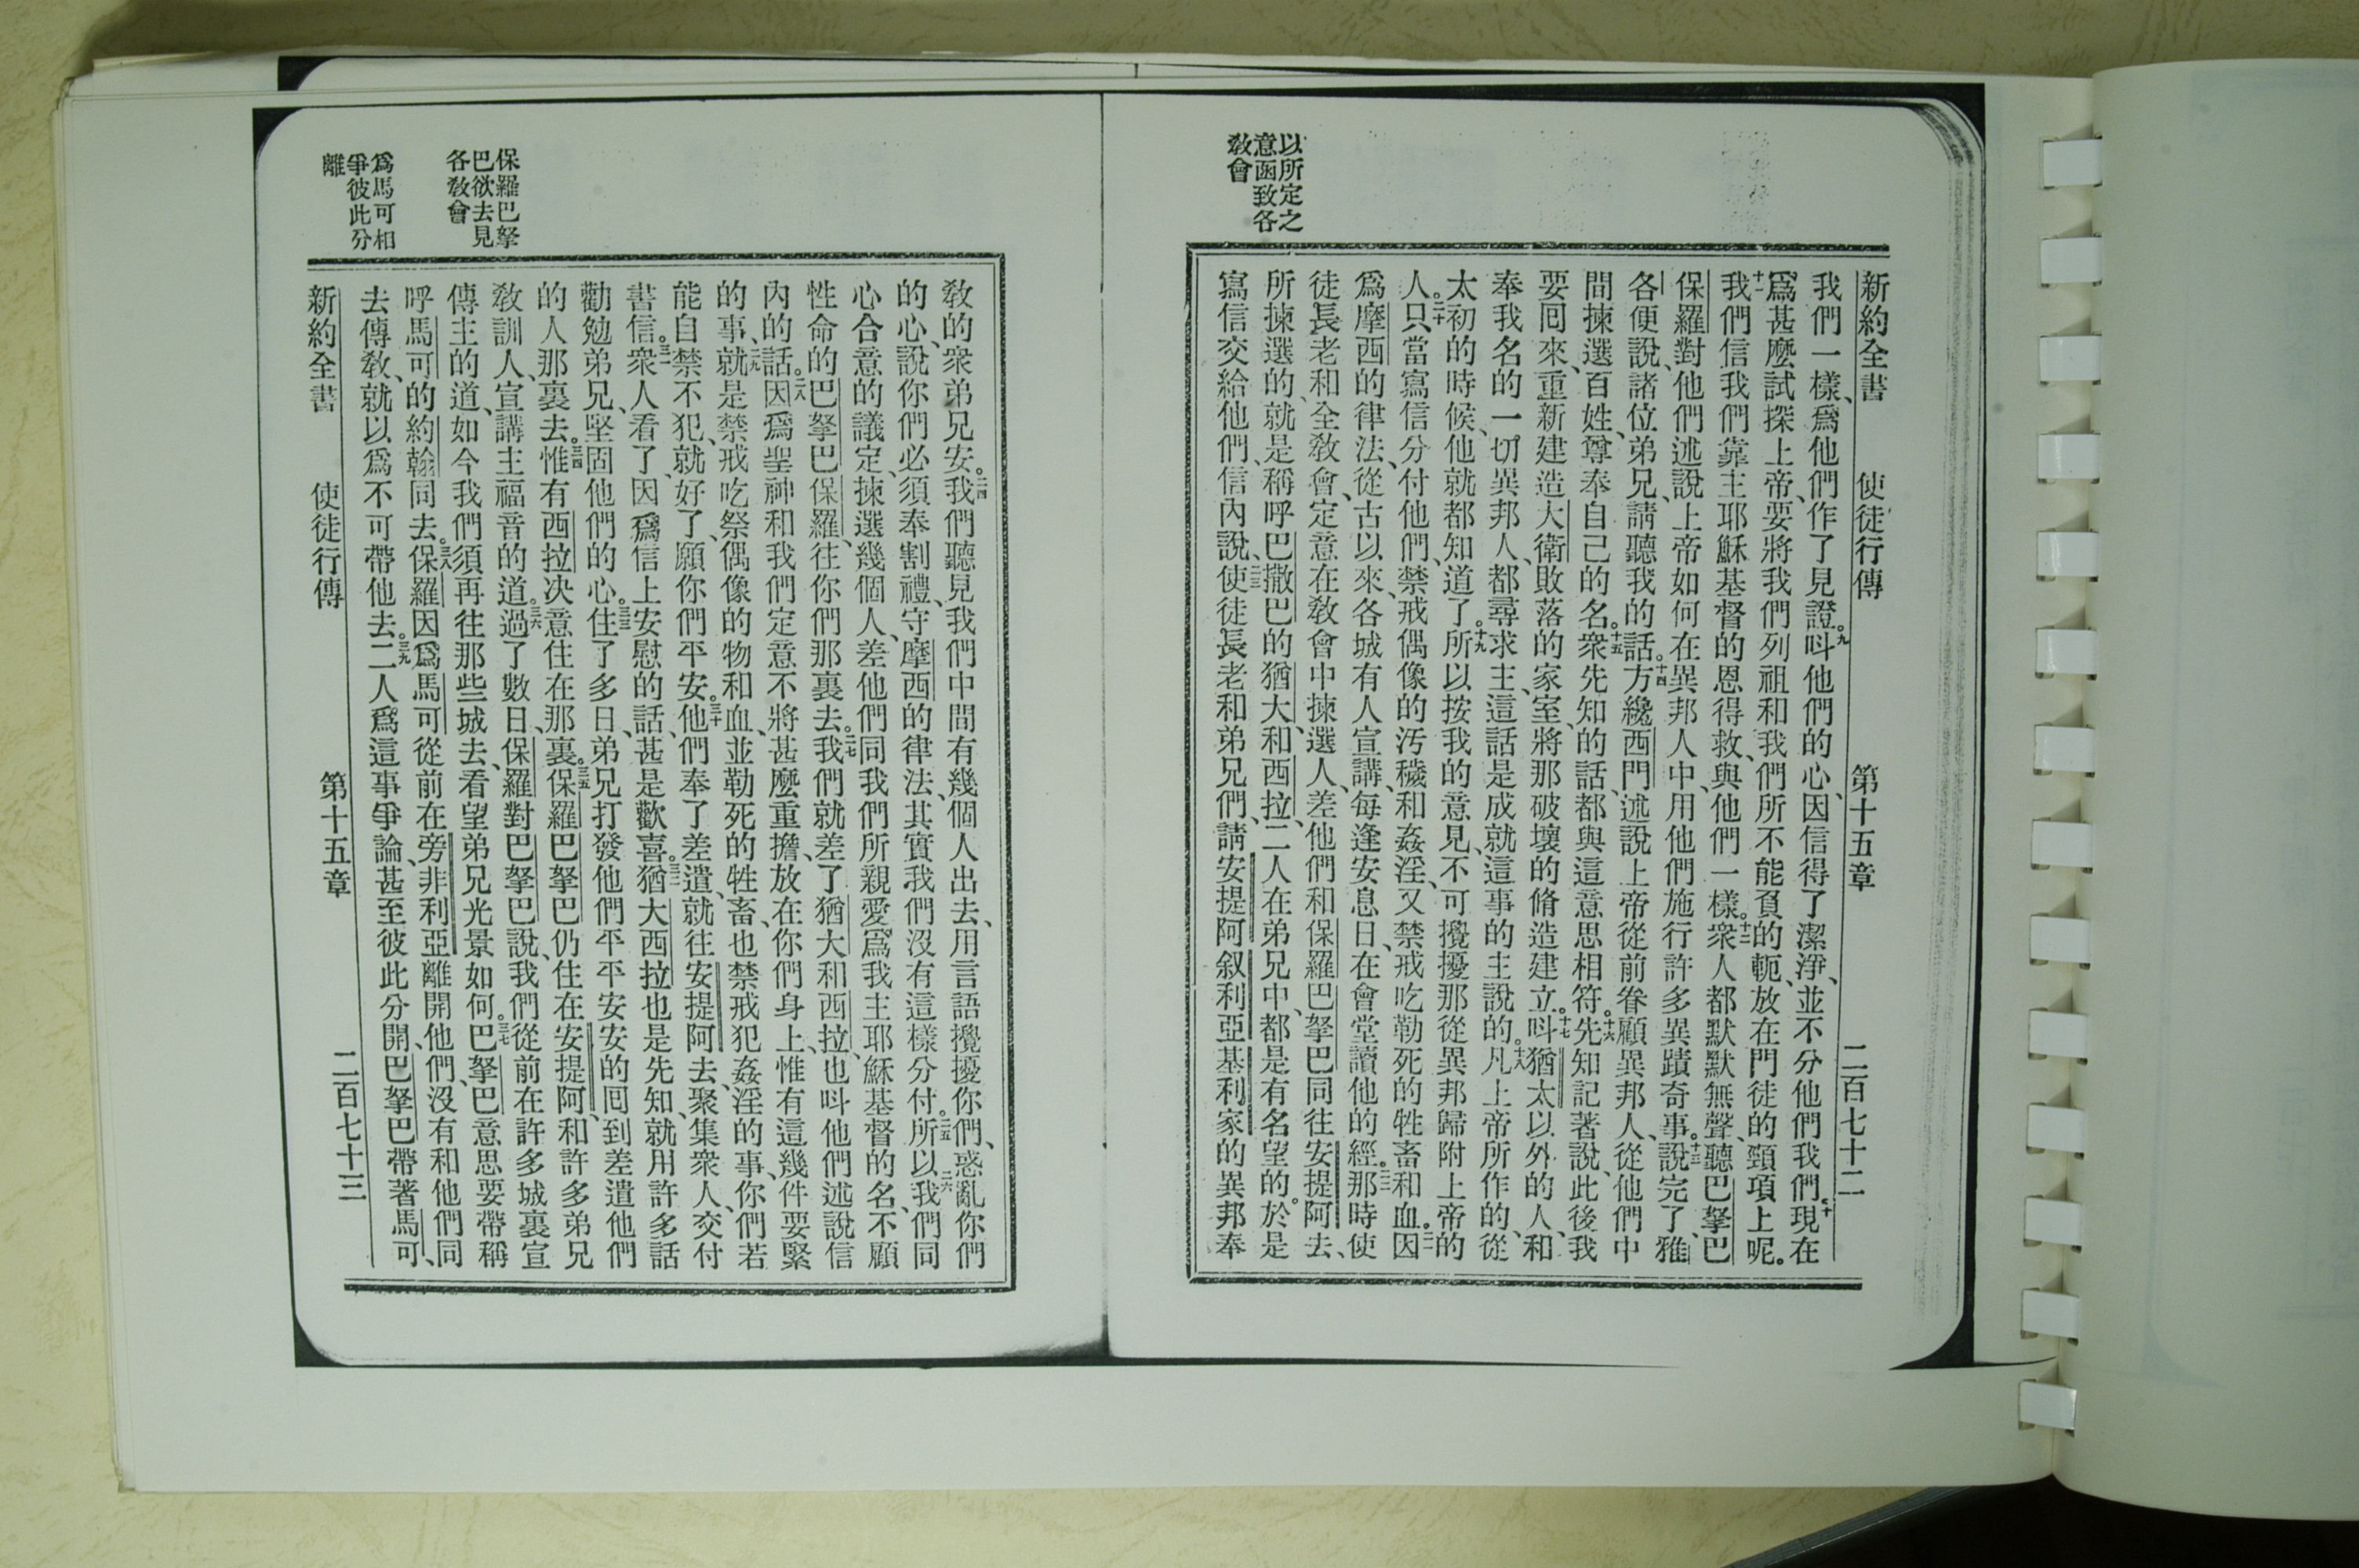 以所定之
意函致各
教會
新約全書 使徒行傳 第十五章 二百七十二
我們一樣、爲他們作了見證。九呌他們的心、因信得了潔淨、並不分他們我們。十現在
爲甚麼試探上帝、要將我們列祖和我們所不能負的軛、放在門徒的頸項上呢。
十一我們信我們靠主耶穌基督的恩得救、與他們一樣。十二衆人都默默無聲、聽巴拏巴
保羅對他們述說上帝如何在異邦人中、用他們施行許多異蹟奇事。十三說完了、雅
各便說、諸位弟兄、請聽我的話。十四方纔西門述說上帝從前眷顧異邦人、從他們中
間揀選百姓、尊奉自己的名。十五衆先知的話、都與這意思相符。十六先知記著說、此後我
要囘來、重新建造大衛敗落的家室、將那破壞的脩造建立。十七呌猶太以外的人、和
奉我名的一切異邦人、都尋求主、這話是成就這事的主說的。十八凡上帝所作的、從
太初的時候、他就都知道了。十九所以按我的意見、不可攪擾那從異邦歸附上帝的
人。二十只當寫信分付他們、禁戒偶像的汚穢和姦淫、又禁戒吃勒死的牲畜和血。二一因
爲摩西的律法、從古以來、各城有人宣講、每逢安息日、在會堂讀他的經。二二那時使
徒長老和全教會、定意在教會中揀選人、差他們和保羅巴拏巴同往安提阿去、
所揀選的、就是稱呼巴撒巴的猶大、和西拉、二人在弟兄中、都是有名望的。於是
寫信交給他們、信內說、二三使徒長老和弟兄們、請安提阿叙利亞基利家的異邦奉
保羅巴拏
巴欲去見
各教會
爲馬可相
爭彼此分
離
教的衆弟兄安。二四我們聽見我們中間有幾個人出去、用言語攪擾你們、惑亂你們
的心、說你們必須奉割禮、守摩西的律法、其實我們沒有這樣分付。二五所以二六我們同
心合意的議定、揀選幾個人、差他們同我們所親愛、爲我主耶穌基督的名、不顧
性命的巴拏巴保羅、往你們那裏去。二七我們就差了猶大和西拉、也呌他們述說信
內的話。二八因爲聖神和我們定意不將甚麼重擔、放在你們身上、惟有這幾件要緊
的事、二九就是禁戒吃祭偶像的物和血、並勒死的牲畜、也禁戒犯姦淫的事、你們若
能自禁不犯、就好了、願你們平安。三十他們奉了差遣、就往安提阿去、聚集衆人、交付
書信。三一衆人看了、因爲信上安慰的話、甚是歡喜。三二猶大西拉也是先知、就用許多話
勸勉弟兄、堅固他們的心。三三住了多日、弟兄打發他們平平安安的囘到差遣他們
的人那裏去。三四惟有西拉决意住在那裏。三五保羅巴拏巴仍住在安提阿、和許多弟兄
教訓人、宣講主福音的道。三六過了數日、保羅對巴拏巴說、我們從前在許多城裏宣
傳主的道、如今我們須再往那些城去、看望弟兄光景如何。三七巴拏巴意思要帶稱
呼馬可的約翰同去。三八保羅因爲馬可從前在旁非利亞離開他們、沒有和他們同
去傳教、就以爲不可帶他去。三九二人爲這事爭論、甚至彼此分開、巴拏巴帶著馬可、
新約全書 使徒行傳 第十五章 二百七十三